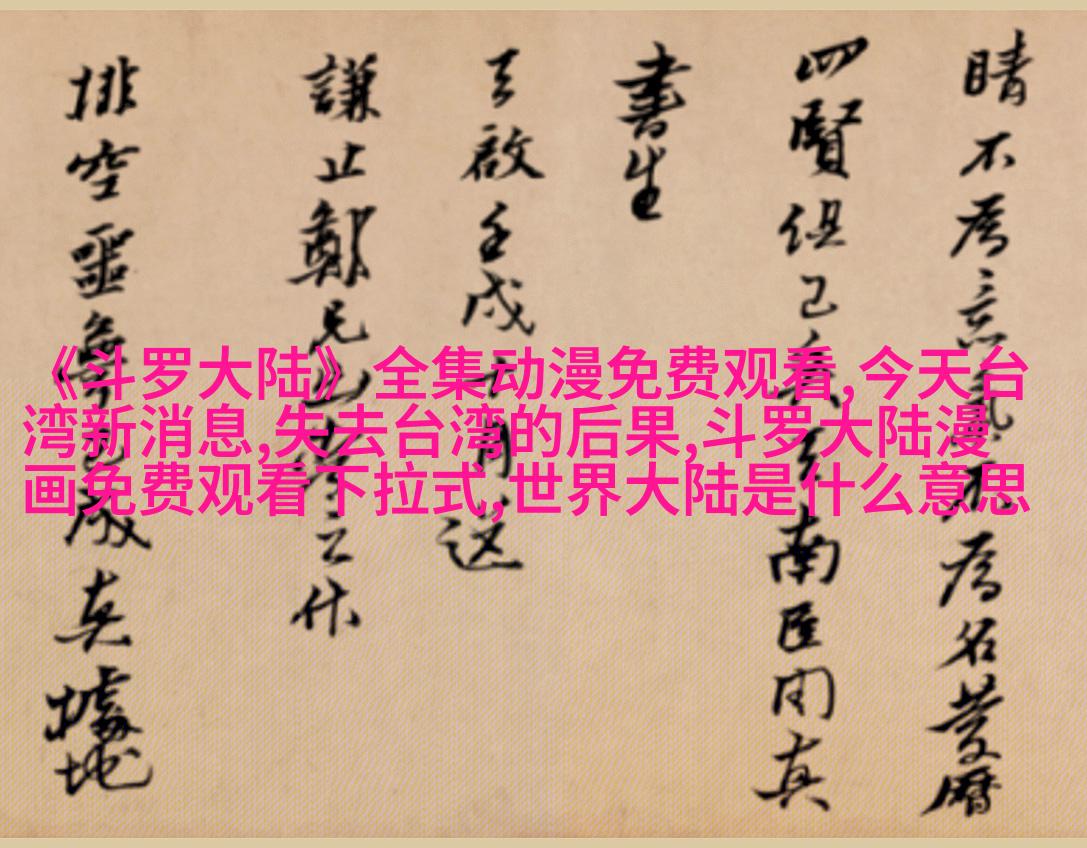 《斗罗大陆》全集动漫免费观看,今天台
湾新消息,失去台湾的后果,斗罗大陆漫
画免费观看下拉式,世界大陆是什么意思
晴不為為名
四賢俱已南匡閑真
書生
天啟壬戌月送
謙止鄭兄之作
排空噩成真據地